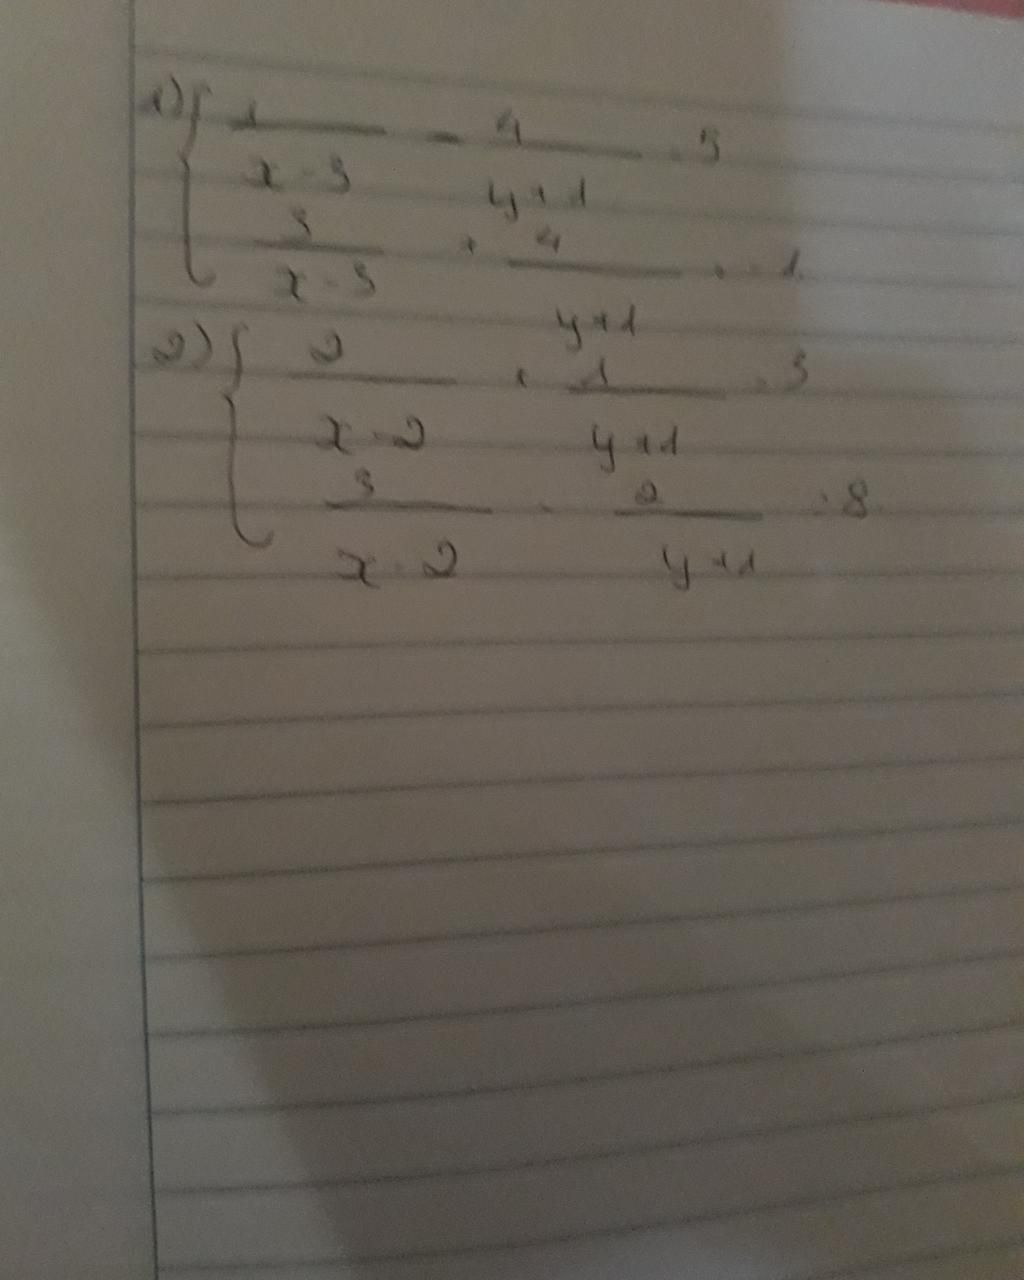 1) { 1/(x-3) - 4/(y+1) = 5
3/(x-3) + 4/(y+1) = -1
2) { 2/(x-2) + 1/(y+1) = 3
3/(x-2) - 2/(y+1) = 8